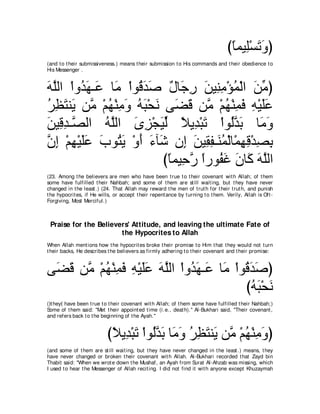 (وَتَسْلِيماً)
(and to their submissiveness.) means their submission to His commands and their obedience to
His Messenger .
مِّنَ الْمُؤْمِنِينَ رِجَالٌ صَدَقُواْ مَا عَـهَدُواْ اللَّهَ
عَلَيْهِ فَمِنْهُمْ مَّن قَضَى نَحْبَهُ وَمِنْهُمْ مَّن يَنتَظِرُ
وَمَا بَدَّلُواْ تَبْدِيلاً لِّيَجْزِيَ اللَّهُ الصَّـدِقِينَ
بِصِدْقِهِمْ وَيُعَذِّبَ الْمُنَـفِقِينَ إِن شَآءَ أَوْ يَتُوبَ عَلَيْهِمْ إِنَّ
اللَّهَ كَانَ غَفُوراً رَّحِيماً)
(23. Among the believers are men who have been true to their covenant with Allah; of them
some have fulfilled their Nahbah; and some of them are still waiting, but they have never
changed in the least.) (24. That Allah may reward the men of truth for their truth, and punish
the hypocrites, if He wills, or accept their repentance by turning to them. Verily, Allah is Oft-
Forgiving, Most Merciful.)
Praise for the Believers' Attitude, and leaving the ultimate Fate of
the Hypocrites to Allah
When Allah mentions how the hypocrites broke their promise to Him that they would not turn
their backs, He describes the believers as firmly adhering to their covenant and their promise:
(صَدَقُواْ مَا عَـهَدُواْ اللَّهَ عَلَيْهِ فَمِنْهُمْ مَّن قَضَى
نَحْبَهُ)
((they) have been true to their covenant with Allah; of them some have fulfilled their Nahbah;)
Some of them said: "Met their appointed time (i.e., death)." Al-Bukhari said, "Their covenant,
and refers back to the beginning of the Ayah."
(وَمِنْهُمْ مَّن يَنتَظِرُ وَمَا بَدَّلُواْ تَبْدِيلاً)
(and some of them are still waiting, but they have never changed in the least.) means, they
have never changed or broken their covenant with Allah. Al-Bukhari recorded that Zayd bin
Thabit said: "When we wrote down the Mushaf, an Ayah from Surat Al-Ahzab was missing, which
I used to hear the Messenger of Allah reciting. I did not find it with anyone except Khuzaymah